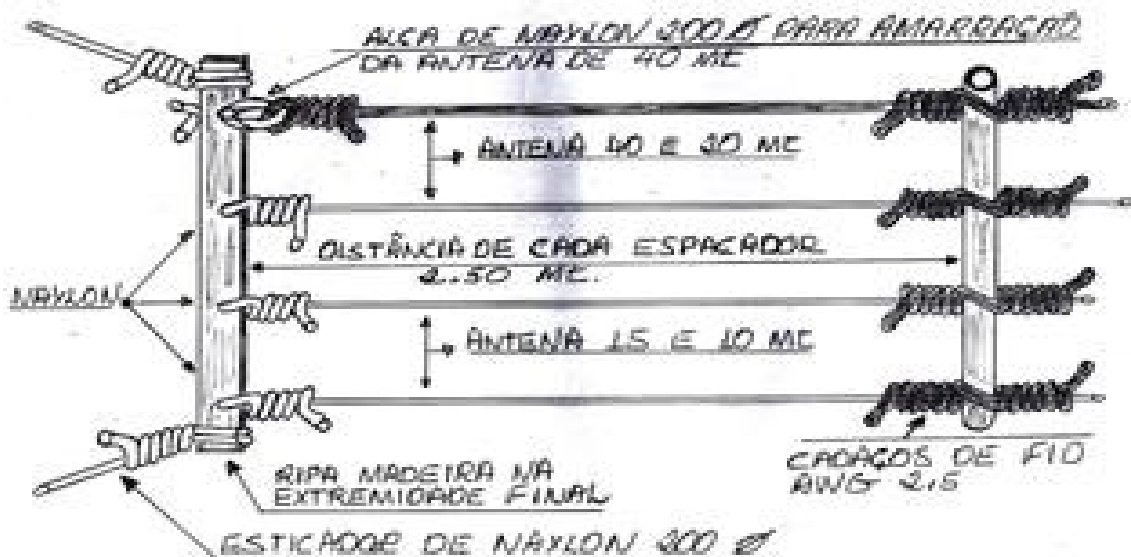 ALÇA DE NAYLON 200 Ø PARA AMARRAÇÃO
DA ANTENA DE 40 MT
ANTENA 40 E 20 MT
DISTÂNCIA DE CADA ESPAÇADOR
2..50 MT.
NAYLON
ANTENA 15 E 10 MT
CADAÇOS DE FIO
AWG 2,5
RIPA MADEIRA NA
EXTREMIDADE FINAL
ESTICADOR DE NAYLON 200 Ø